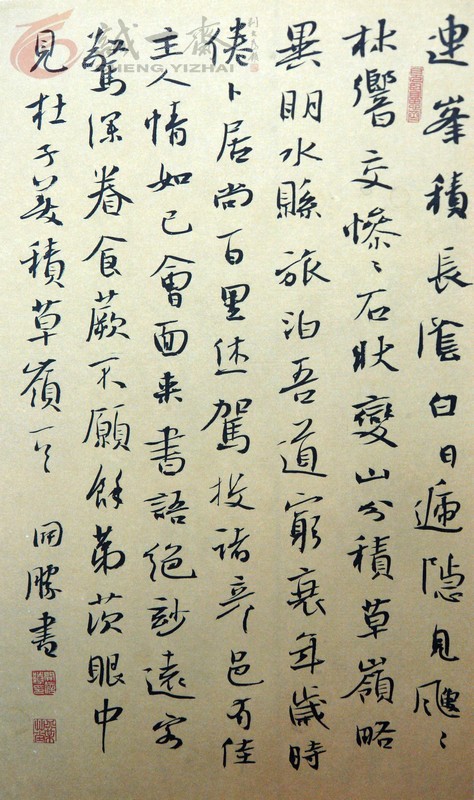 誠一齋
CHENG YIZHAI
連峯積長陰白日遞隱見颼〻
林響交慘〻石狀變山分積草嶺路
異明水縣旅泊吾道窮衰年歲時
倦卜居尚百里休駕投諸彥邑有佳
主人情如已會面来書語絕玅遠客
驚深眷食蕨不願餘茅茨眼中
見杜子美積草嶺一首 開勝書